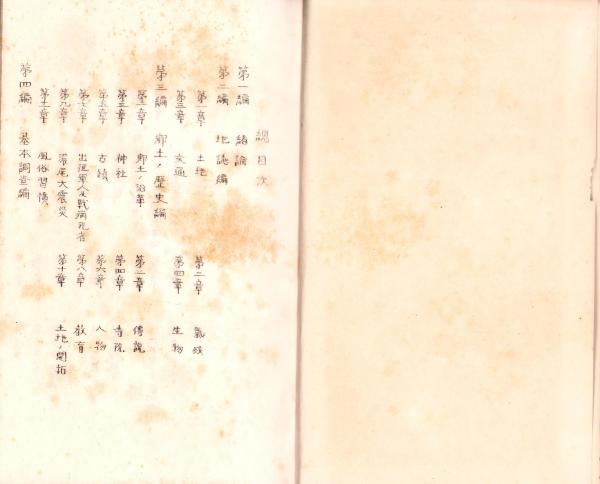 総目次
第一編 緒論
第二編 地誌編
第一章 土地 第二章 気候
第三章 交通 第四章 生物
第三編 郷土ノ歴史編
第一章 郷土ノ沿革 第二章 傳説
第三章 神社 第四章 寺院
第五章 古蹟 第六章 人物
第七章 出征軍人及戦病死者 第八章 教育
第九章 濃尾大震災 第十章 土地ノ開拓
第十一章 風俗習慣
第四編 基本調査編